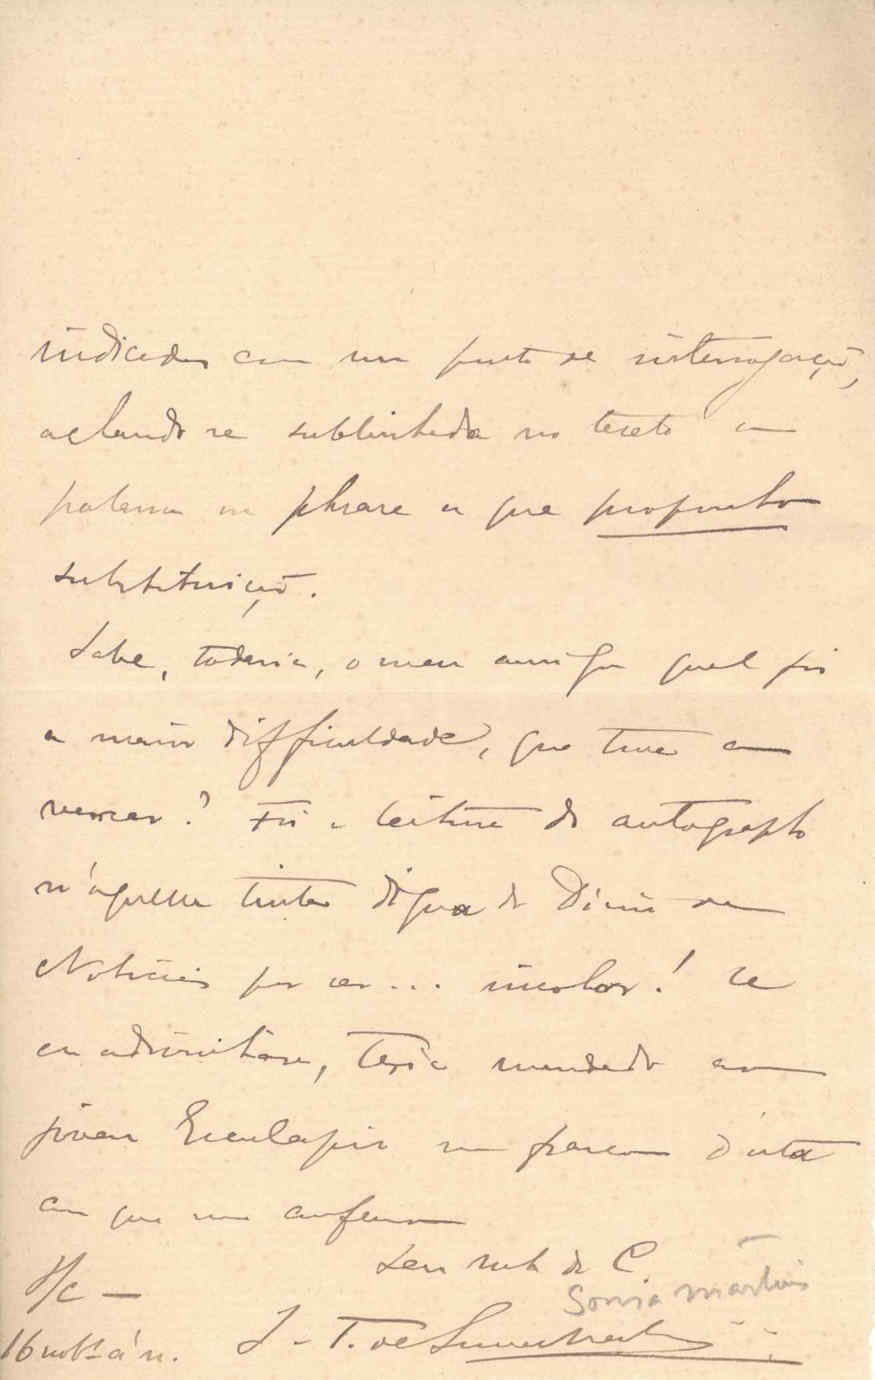 indicadas com um ponto de interrogação,
achando se sublinhada no texto a
palavra ou phrase a que proponho
substituição.
Sabe, todavia, o meu amigo qual foi
a maior difficuldade, que tive a
vencer? Foi a leitura do autographo
n'aquella tinta digna do Diario de
Noticias por ser... incolor! Se
eu adivinhasse, teria mandado ao
joven Esculapio um frasco d'esta
com que me confesso
Seu
S/C —
Sousa Martins
16 á n. J. T. de